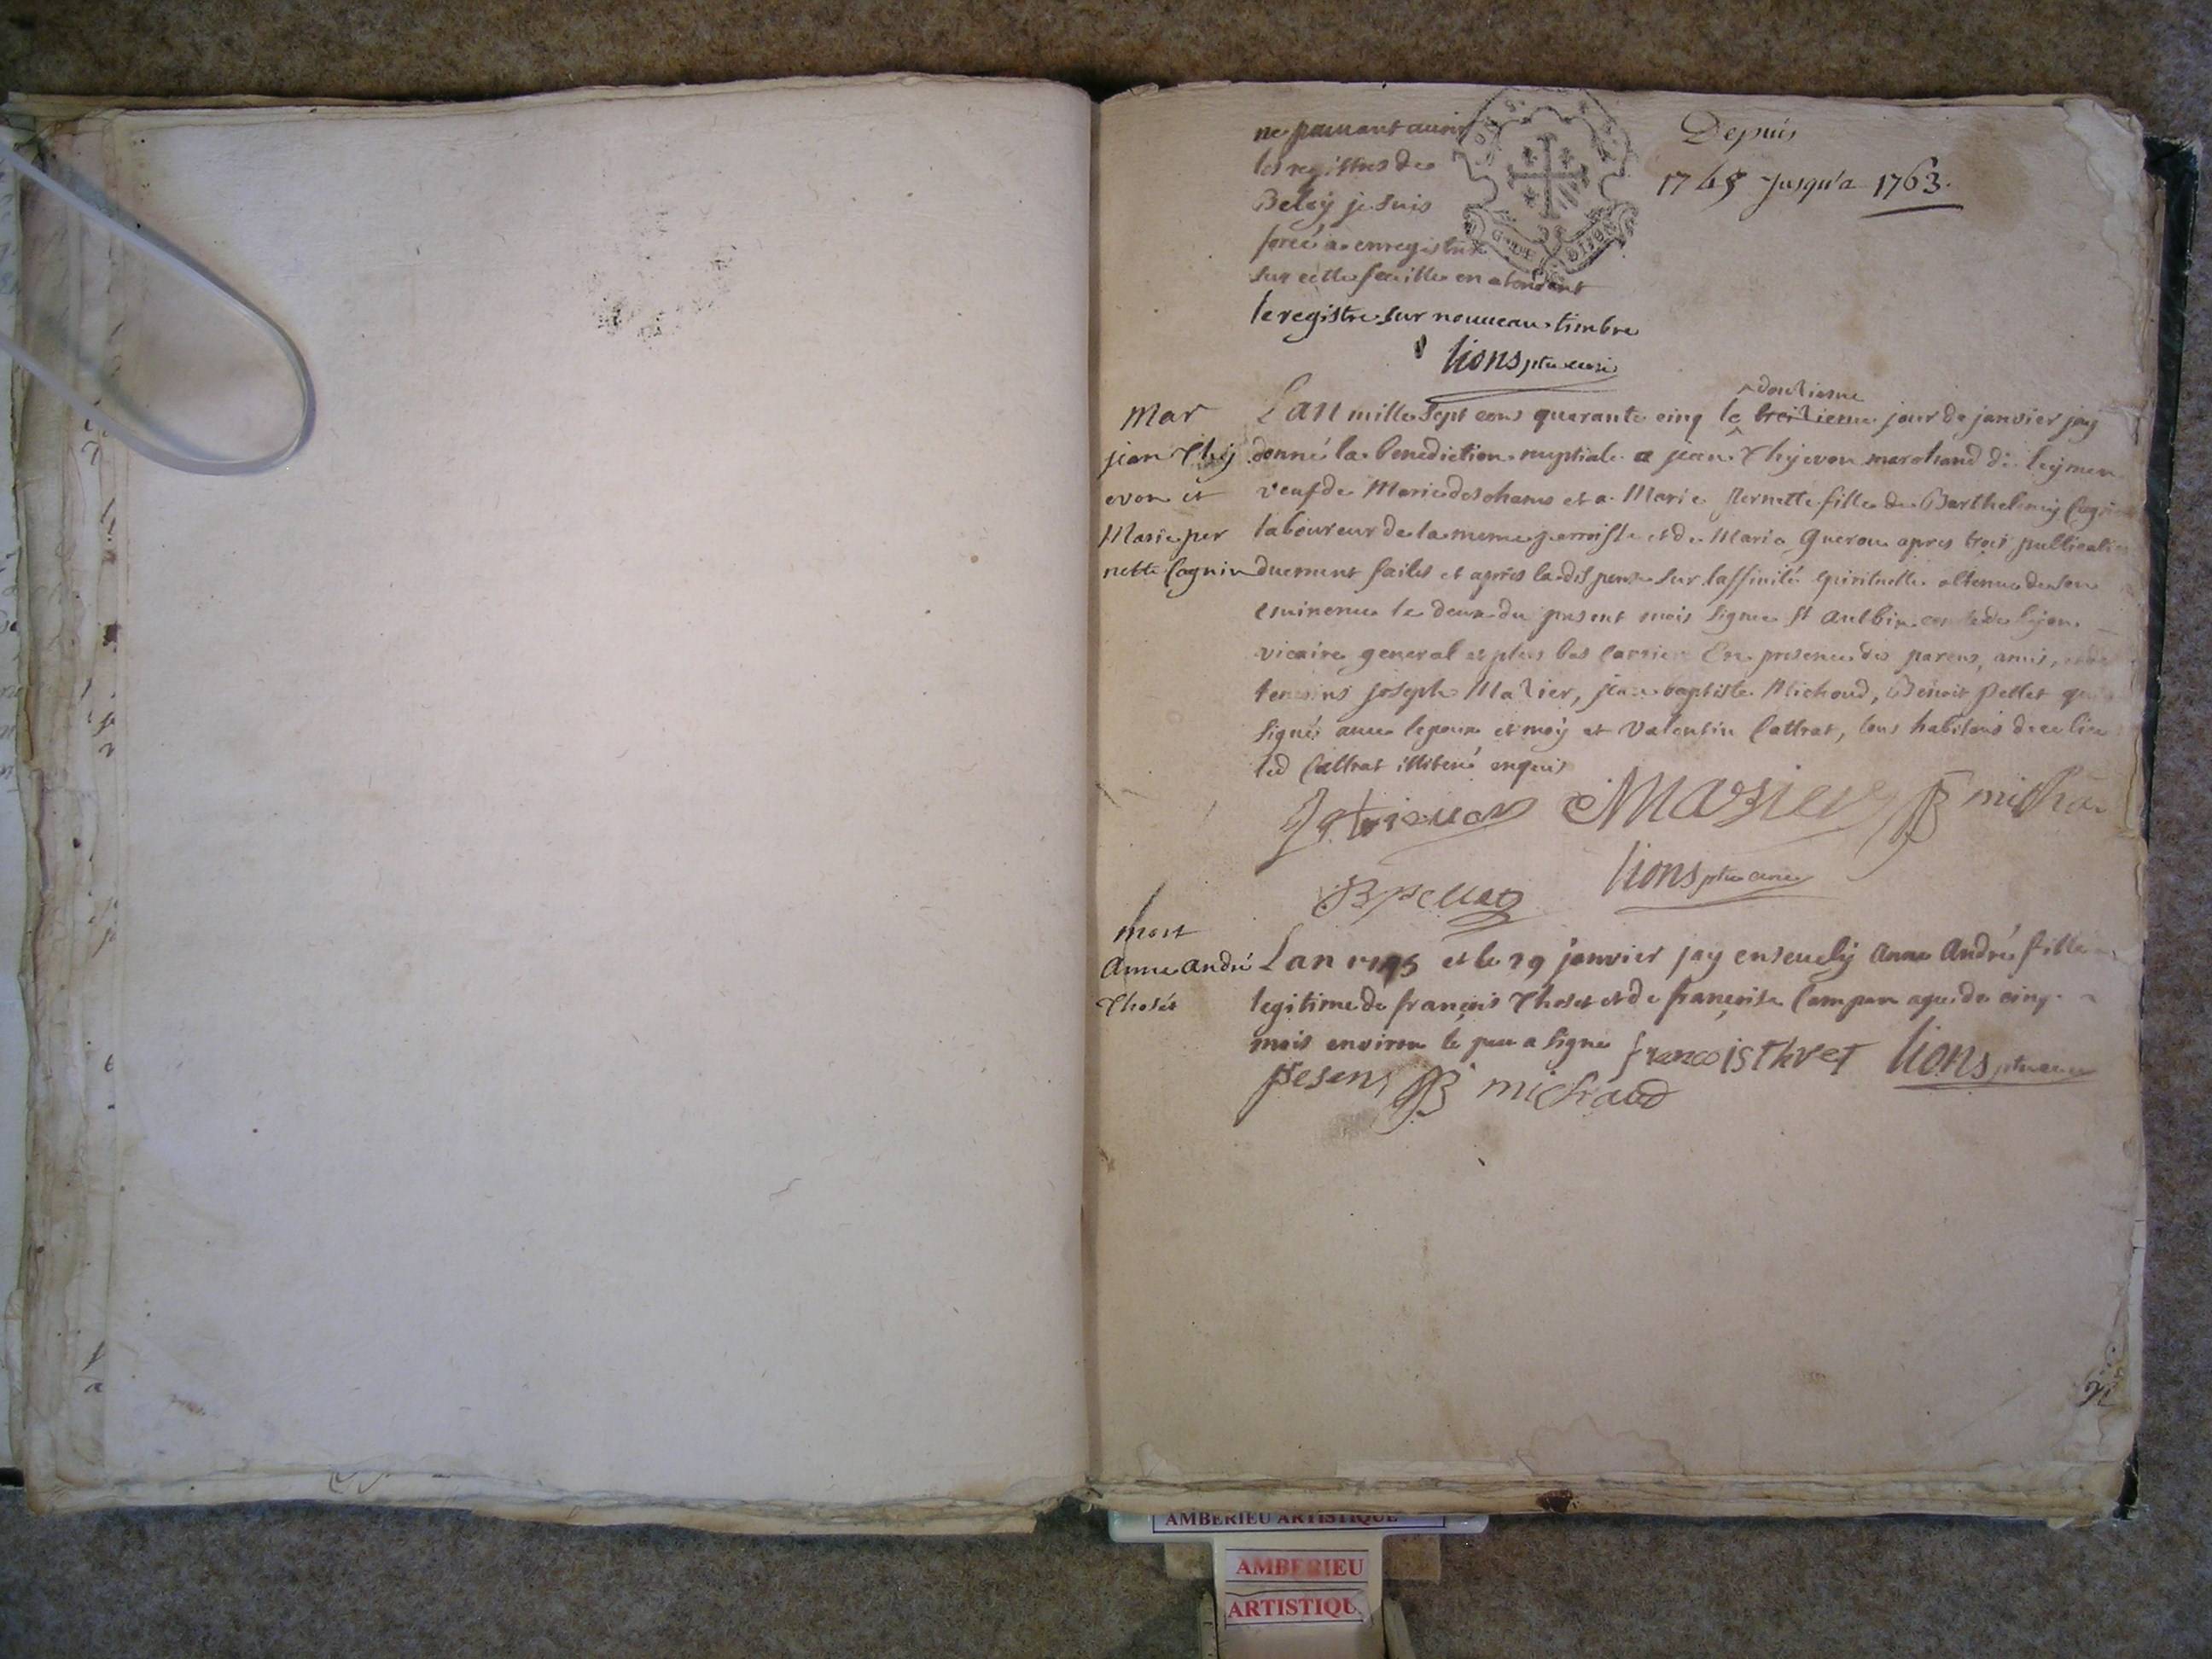 ne pouuant auoir
les registres de
Beley je suis
forcé a enregistrer
sur cette feuille en atendant
le registre sur nouueau timbre
lions ptre curé
Depuis
1745 jusqu'a 1763.
Mar
jean Thij
evon et
Marie per
nette Cognin
douzieme
L'an mille sept cens quarante cinq le treizieme jour de janvier jay
donné la benediction nuptiale a jean Thijevon marchand de leymen
veuf de Marie deschams et a Marie pernette fille de Barthelmy Cognin
laboureur de la meme parroisse et de Maria Gueron apres trois publications
duement faites et après la dispense sur l'affinité spirituelle obtenue de son
eminence le deux du present mois signée St Aulbin comte de lyon
vicaire general et plus bas En presence des parens, amis,
temoins joseph Mazier, jean baptiste Michoud, Benoit Pellet qui
signés auec lepoux et moy et Valentin Cattrat, tous habitans de ce lieu
led Cattrat illiteré enquis
Mazier JB micha
B pellet lions ptre curé
mort
Anne andré
Thoset
L'an 1745 et le 29 janvier jay enseuely Anne André fille
legitime de françois Thoset et de françoise Compan agée de cinq
mois environ le pere a signé francois thvet lions ptre curé
presens JB michaud
AMBERIEU ARTISTIQUE
AMBERIEU
ARTISTIQU